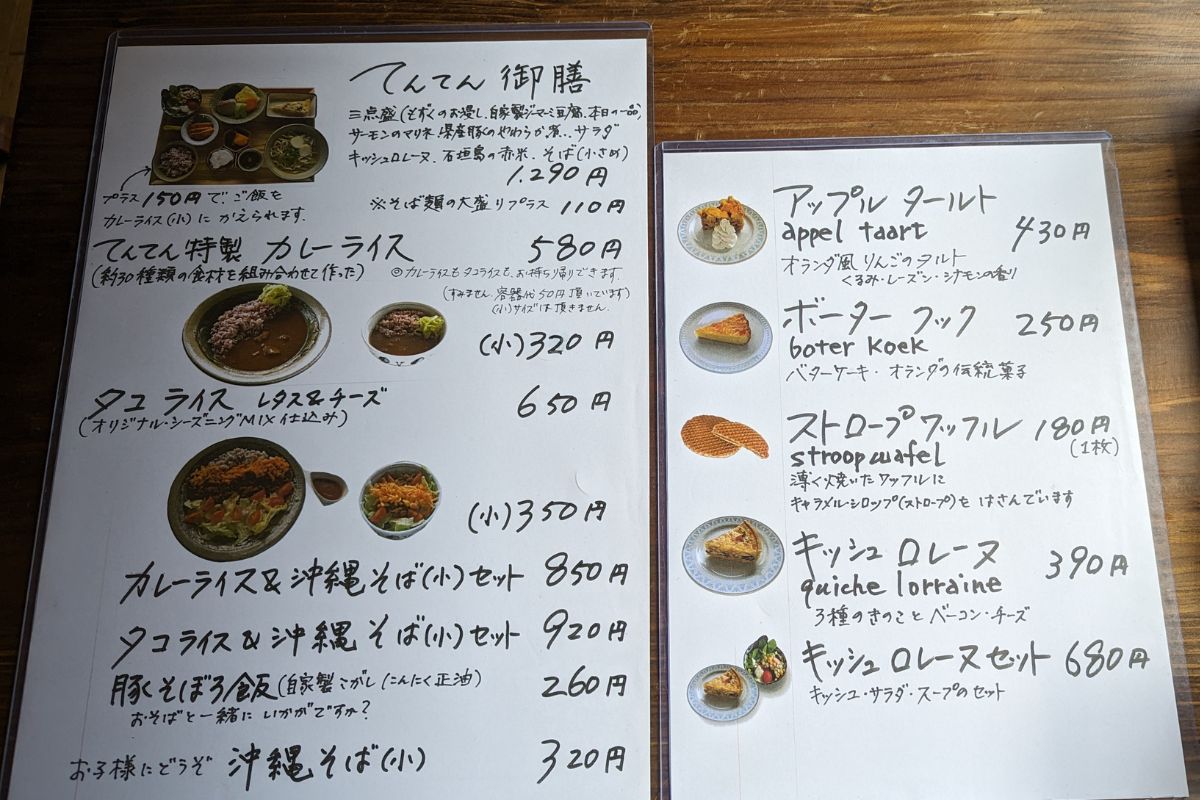 てんてん 御膳
三点盛(もずくのお浸し.自家製ジーマーミ豆腐.本日の一品)
サーモンのマリネ.県産豚のやわらか煮..サラダ
キッシュロレーヌ.石垣島の赤米.そば(小さめ)
1.290円
プラス150円で、ご飯を
カレーライス(小)にかえられます.
※そば類の大盛りプラス 110円
てんてん特製 カレーライス 580円
(約30種類の食材を組み合わせて作った)
◎カレーライスもタコライスも、お持ち帰りできます.
(すみません.容器代50円頂いています)
(小)サイズは頂きません.
(小)320円
タコライス レタス&チーズ 650円
(オリジナル・シーズニングMIX仕込み)
(小)350円
カレーライス&沖縄そば(小)セット 850円
タコライス&沖縄そば(小)セット 920円
豚そぼろ飯(自家製こがしにんにく正油) 260円
おそばと一緒にいかがですか?
お子様にどうぞ 沖縄そば(小) 320円
アップルタールト
appel taart 430円
オランダ風りんごのタルト
くるみ・レーズン・シナモンの香り
ボーター クック 250円
boter koek
バターケーキ・オランダの伝統菓子
ストロープワッフル 180円
stroopwafel (1枚)
薄く焼いたワッフルに
キャラメルシロップ(ストロープ)をはさんでいます
キッシュ ロレーヌ 390円
quiche lorraine
3種のきのことベーコン・チーズ
キッシュ ロレーヌセット 680円
キッシュ・サラダ・スープのセット